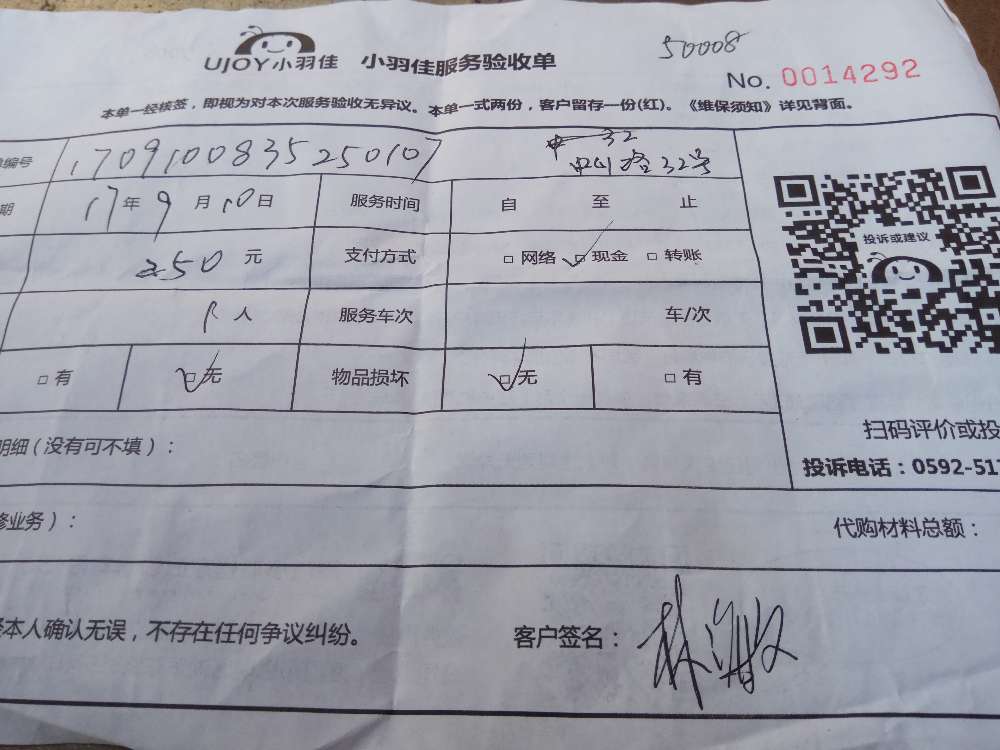 50008
UJOY小羽佳 小羽佳服务验收单
No. 0014292
本单一经核签，即视为对本次服务验收无异议。本单一式两份，客户留存一份(红)。《维保须知》详见背面。
编号 1709100835250107 中 32
中山路32号
期 17年9月10日 服务时间 自 至 止
250元 支付方式 □ 网络 □ 现金 □ 转账
投诉或建议
人 服务车次 车/次
□ 有 □ 无 物品损坏 □ 无 □ 有
明细（没有可不填）：
扫码评价或投
投诉电话：0592-511
修业务）：
代购材料总额：
经本人确认无误，不存在任何争议纠纷。 客户签名：